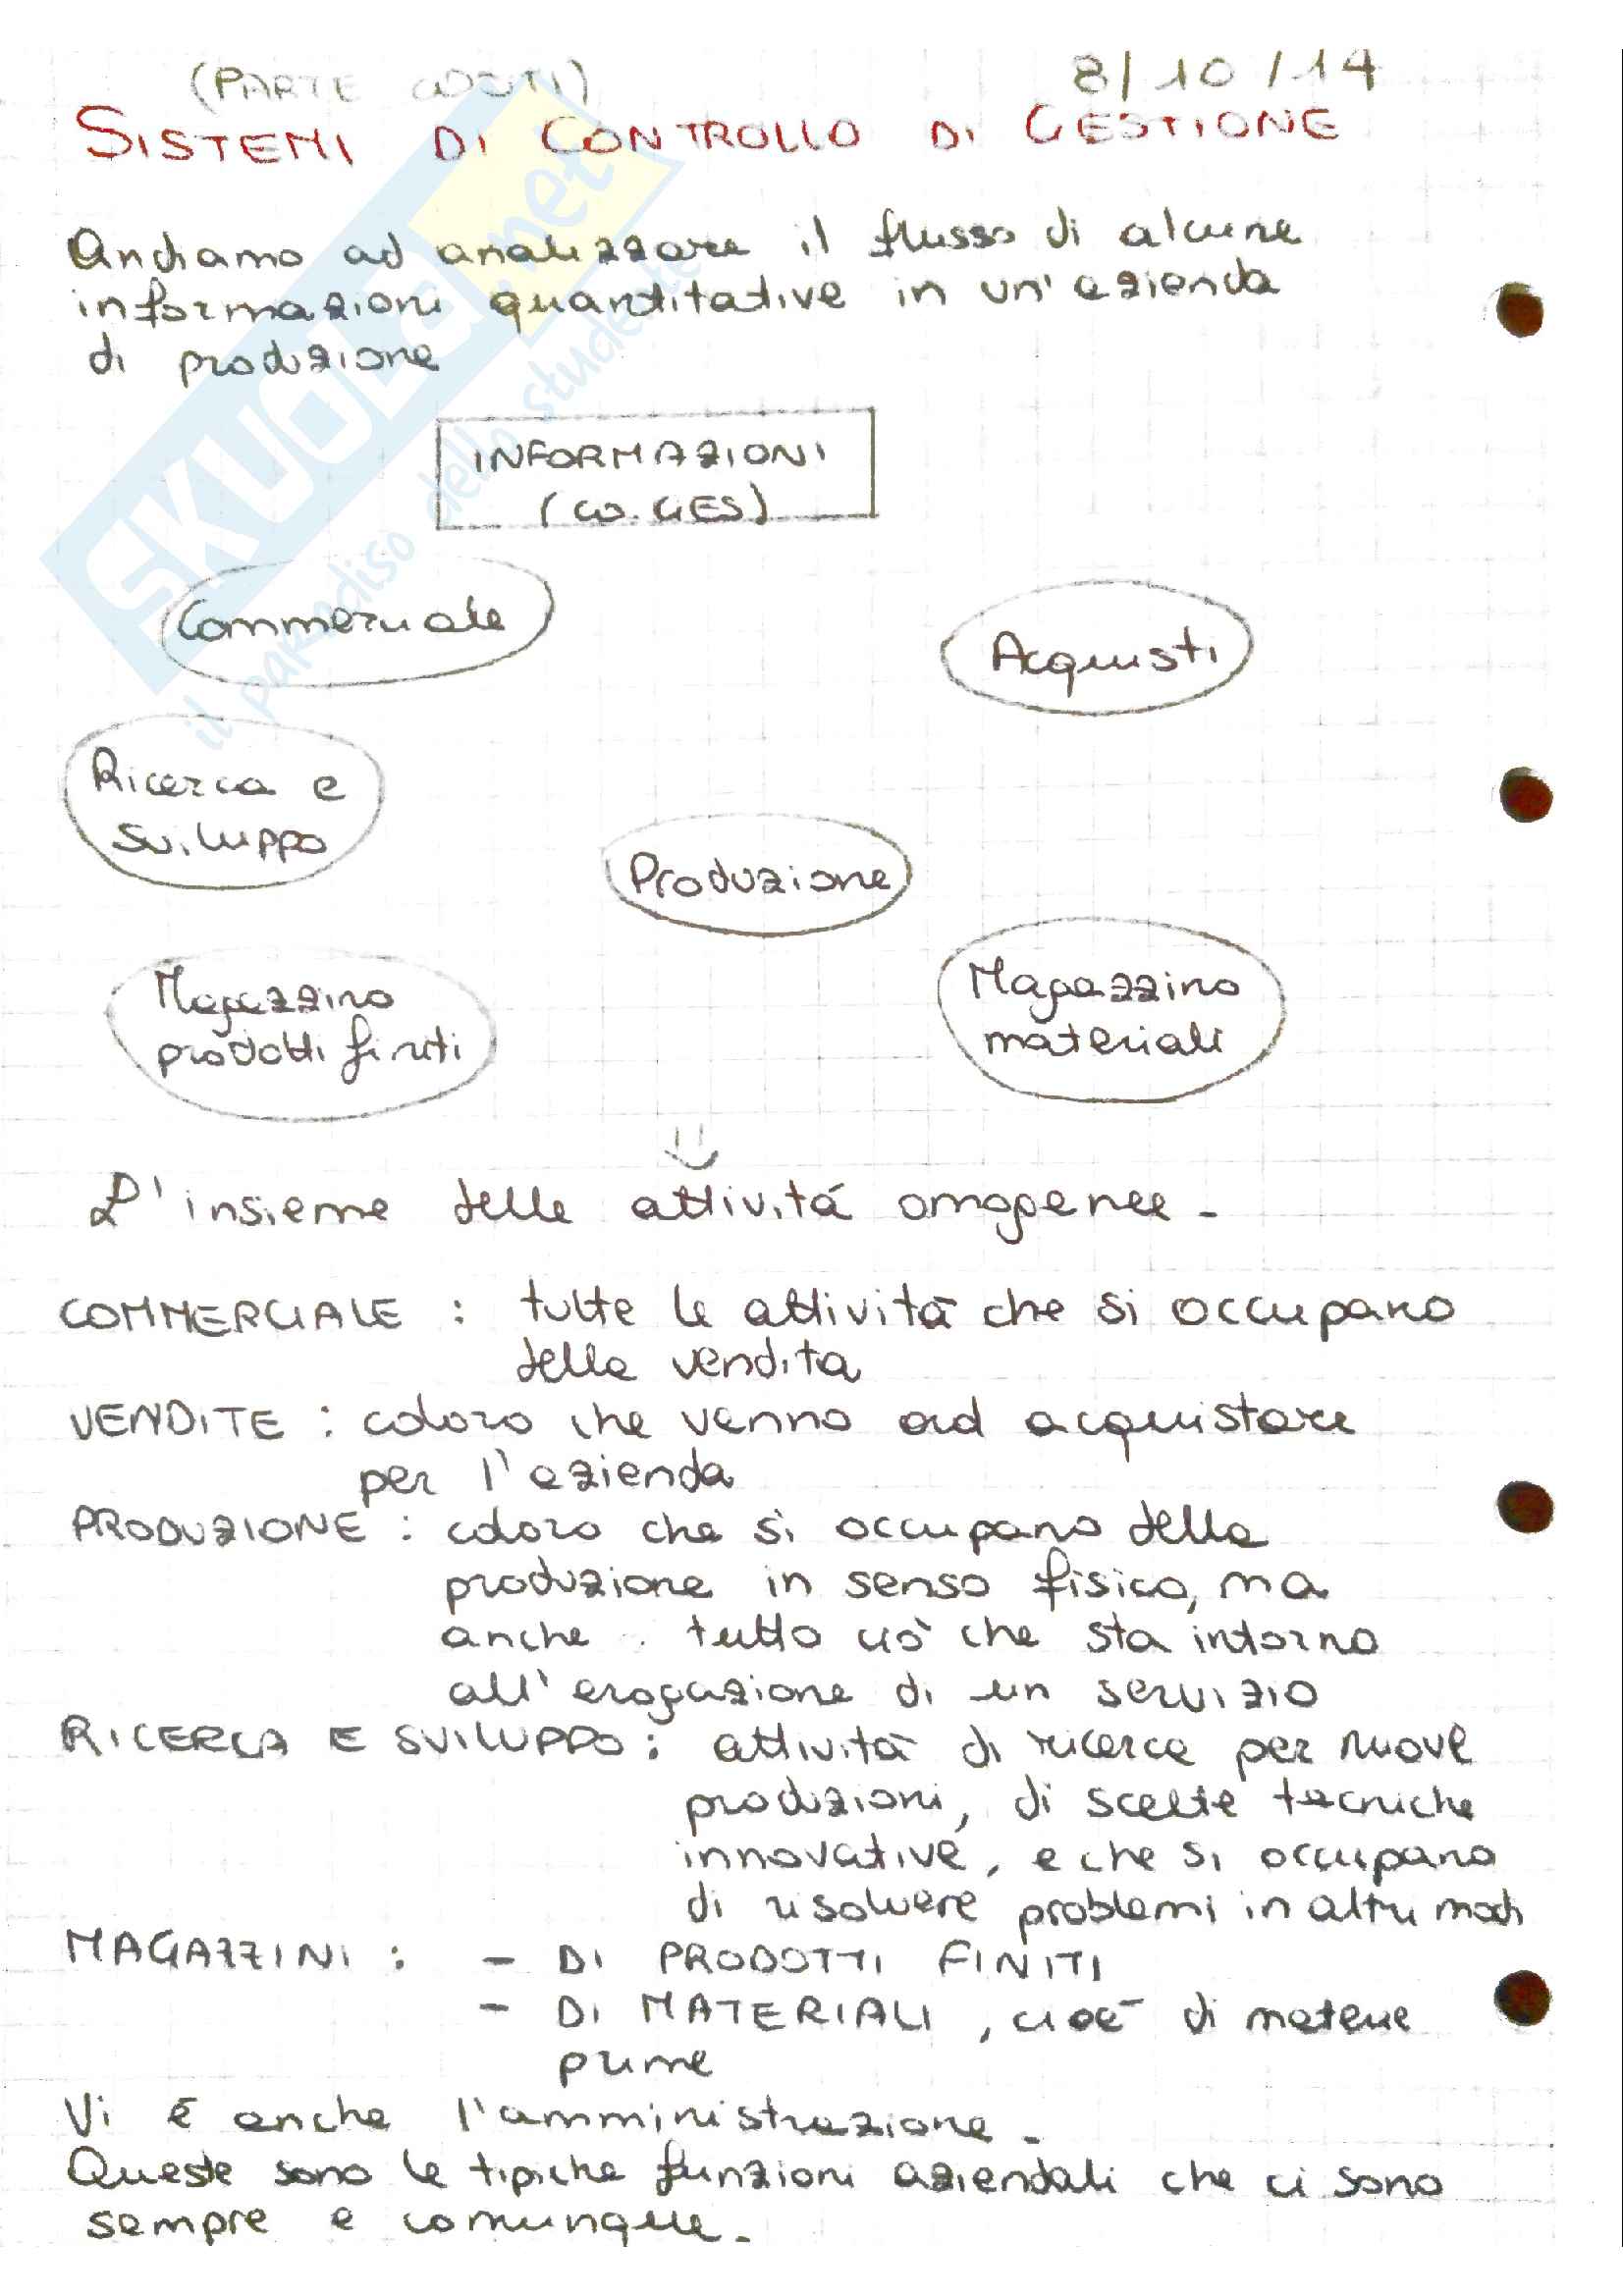 (PARTE COSTI) 8/10/14
SISTEMI DI CONTROLLO DI GESTIONE
Andiamo ad analizzare il flusso di alcune
informazioni quantitative in un'azienda
di produzione
INFORMAZIONI
(CO.GES)
Commerciale
Acquisti
Ricerca e
sviluppo
Produzione
Magazzino
prodotti finiti
Magazzino
materiali
L'insieme delle attivitá omogenee.
COMMERCIALE : tutte le attività che si occupano
della vendita
VENDITE : coloro che vanno ad acquistare
per l'azienda
PRODUZIONE : coloro che si occupano della
produzione in senso fisico, ma
anche tutto ciò che sta intorno
all'erogazione di un servizio
RICERCA E SVILUPPO : attività di ricerca per nuove
produzioni, di scelte tecniche
innovative, e che si occupano
di risolvere problemi in altri modi
MAGAZZINI : - DI PRODOTTI FINITI
- DI MATERIALI, cioè di materie
prime
Vi è anche l'amministrazione.
Queste sono le tipiche funzioni aziendali che ci sono
sempre e comunque.
SKUOLA.net
il paradiso dello studente